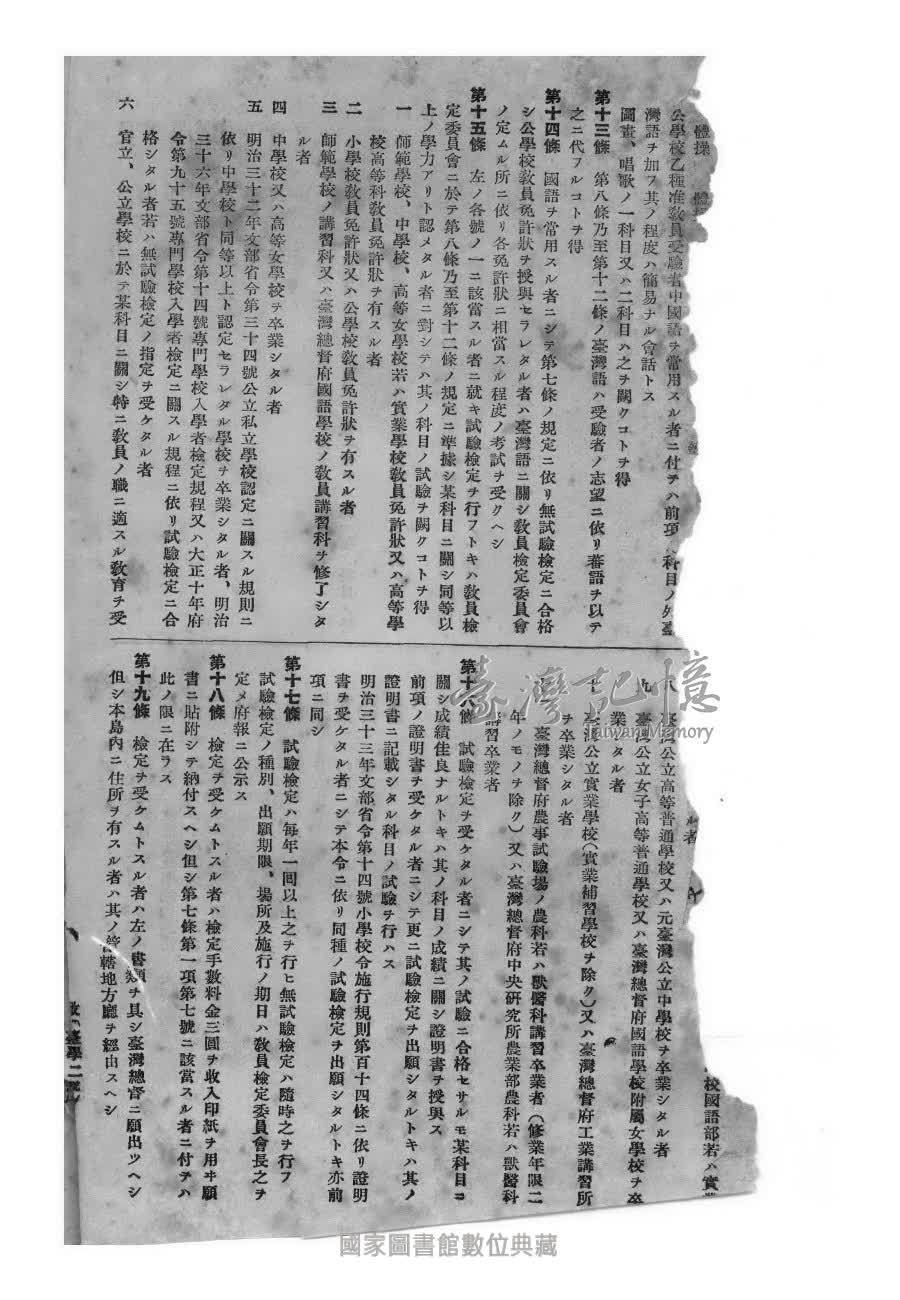 體操　體操
公學校乙種准教員受驗者中國語ヲ常用スル者ニ付テハ前項ノ科目ノ外臺
灣語ヲ加フ其ノ程度ハ簡易ナル會話トス
圖畫、唱歌ノ一科目又ハ二科目ハ之ヲ闕クコトヲ得
第十三條　第八條乃至第十二條ノ臺灣語ハ受驗者ノ志望ニ依リ蕃語ヲ以テ
之ニ代フルコトヲ得
第十四條　國語ヲ常用スル者ニシテ第七條ノ規定ニ依リ無試驗檢定ニ合格
シ公學校教員免許狀ヲ授與セラレタル者ハ臺灣語ニ關シ教員檢定委員會
ノ定ムル所ニ依リ各免許狀ニ相當スル程度ノ考試ヲ受クヘシ
第十五條　左ノ各號ノ一ニ該當スル者ニ就キ試驗檢定ヲ行フトキハ教員檢
定委員會ニ於テ第八條乃至第十二條ノ規定ニ準據シ某科目ニ關シ同等以
上ノ學力アリト認メタル者ニ對シテハ其ノ科目ノ試驗ヲ闕クコトヲ得
一　師範學校、中學校、高等女學校若ハ實業學校教員免許狀又ハ高等學
校高等科教員免許狀ヲ有スル者
二　小學校教員免許狀又ハ公學校教員免許狀ヲ有スル者
三　師範學校ノ講習科又ハ臺灣總督府國語學校ノ教員講習科ヲ修了シタ
ル者
四　中學校又ハ高等女學校ヲ卒業シタル者
五　明治三十二年文部省令第三十四號公立私立學校認定ニ關スル規則ニ
依リ中學校ト同等以上ト認定セラレタル學校ヲ卒業シタル者、明治
三十六年文部省令第十四號專門學校入學者檢定規程又ハ大正十年府
令第九十五號專門學校入學者檢定ニ關スル規程ニ依リ試驗檢定ニ合
格シタル者若ハ無試驗檢定ノ指定ヲ受ケタル者
六　官立、公立學校ニ於テ某科目ニ關シ特ニ教員ノ職ニ適スル教育ヲ受
校國語部若ハ實業
ル者
八　臺灣公立高等普通學校又ハ元臺灣公立中學校ヲ卒業シタル者
九　臺灣公立女子高等普通學校又ハ臺灣總督府國語學校附屬女學校ヲ卒
業シタル者
十　臺灣公立實業學校(實業補習學校ヲ除ク)又ハ臺灣總督府工業講習所
ヲ卒業シタル者
臺灣總督府農事試驗場ノ農科若ハ獸醫科講習卒業者(修業年限二
年ノモノヲ除ク)又ハ臺灣總督府中央研究所農業部農科若ハ獸醫科
講習卒業者
第十六條　試驗檢定ヲ受ケタル者ニシテ其ノ試驗ニ合格セサルモ某科目ニ
關シ成績佳良ナルトキハ其ノ科目ノ成績ニ關シ證明書ヲ授與ス
前項ノ證明書ヲ受ケタル者ニシテ更ニ試驗檢定ヲ出願シタルトキハ其ノ
證明書ニ記載シタル科目ノ試驗ヲ行ハス
明治三十三年文部省令第十四號小學校令施行規則第百十四條ニ依リ證明
書ヲ受ケタル者ニシテ本令ニ依リ同種ノ試驗檢定ヲ出願シタルトキ亦前
項ニ同シ
第十七條　試驗檢定ハ每年一囘以上之ヲ行ヒ無試驗檢定ハ隨時之ヲ行フ
試驗檢定ノ種別、出願期限、場所及施行ノ期日ハ教員檢定委員會長之ヲ
定メ府報ニ公示ス
第十八條　檢定ヲ受ケムトスル者ハ檢定手數料金三圓ヲ收入印紙ヲ用ヰ願
書ニ貼附シテ納付スヘシ但シ第七條第一項第七號ニ該當スル者ニ付テハ
此ノ限ニ在ラス
第十九條　檢定ヲ受ケムトスル者ハ左ノ書類ヲ具シ臺灣總督ニ願出ツヘシ
但シ本島內ニ住所ヲ有スル者ハ其ノ管轄地方廳ヲ經由スヘシ
臺灣記憶
Taiwan Memory
國家圖書館數位典藏